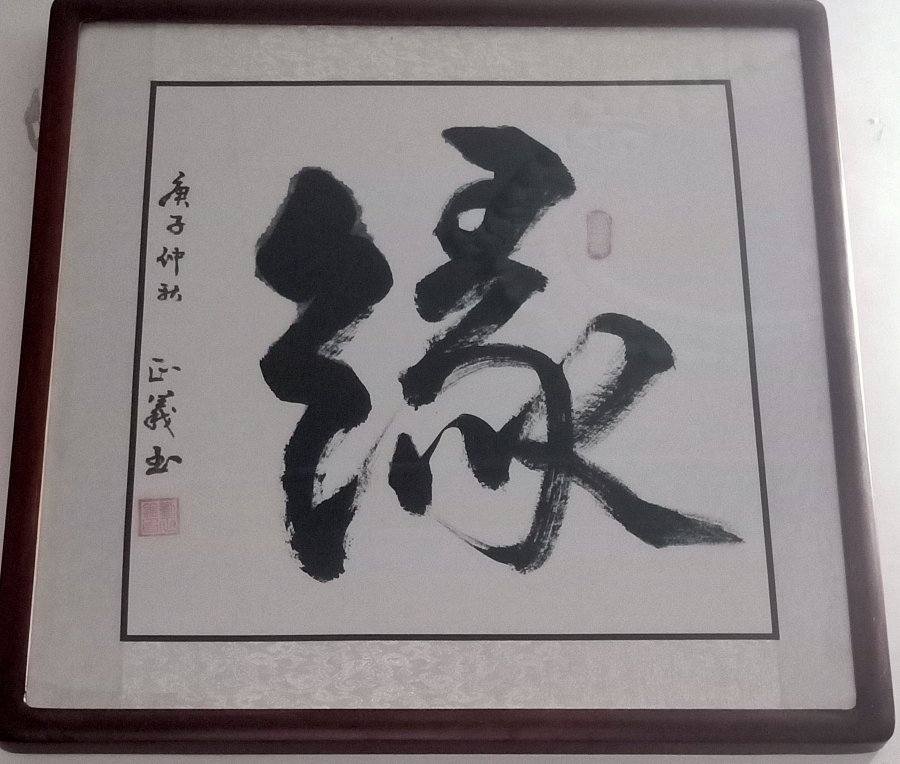 緣
庚子仲秋
正義书